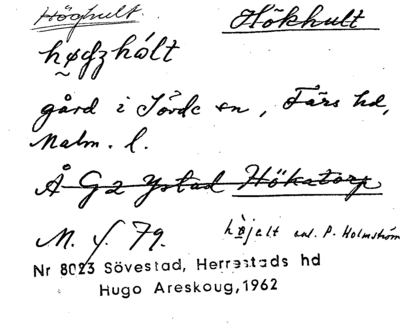 Höghult Hökhult
gård i Sövde sn, Färs hd,
Malm. l.
Å G2 Ystad Hökatorp
M. f. 79. enl. P. Holmström
Nr 8023 Sövestad, Herrestads hd
Hugo Areskoug, 1962